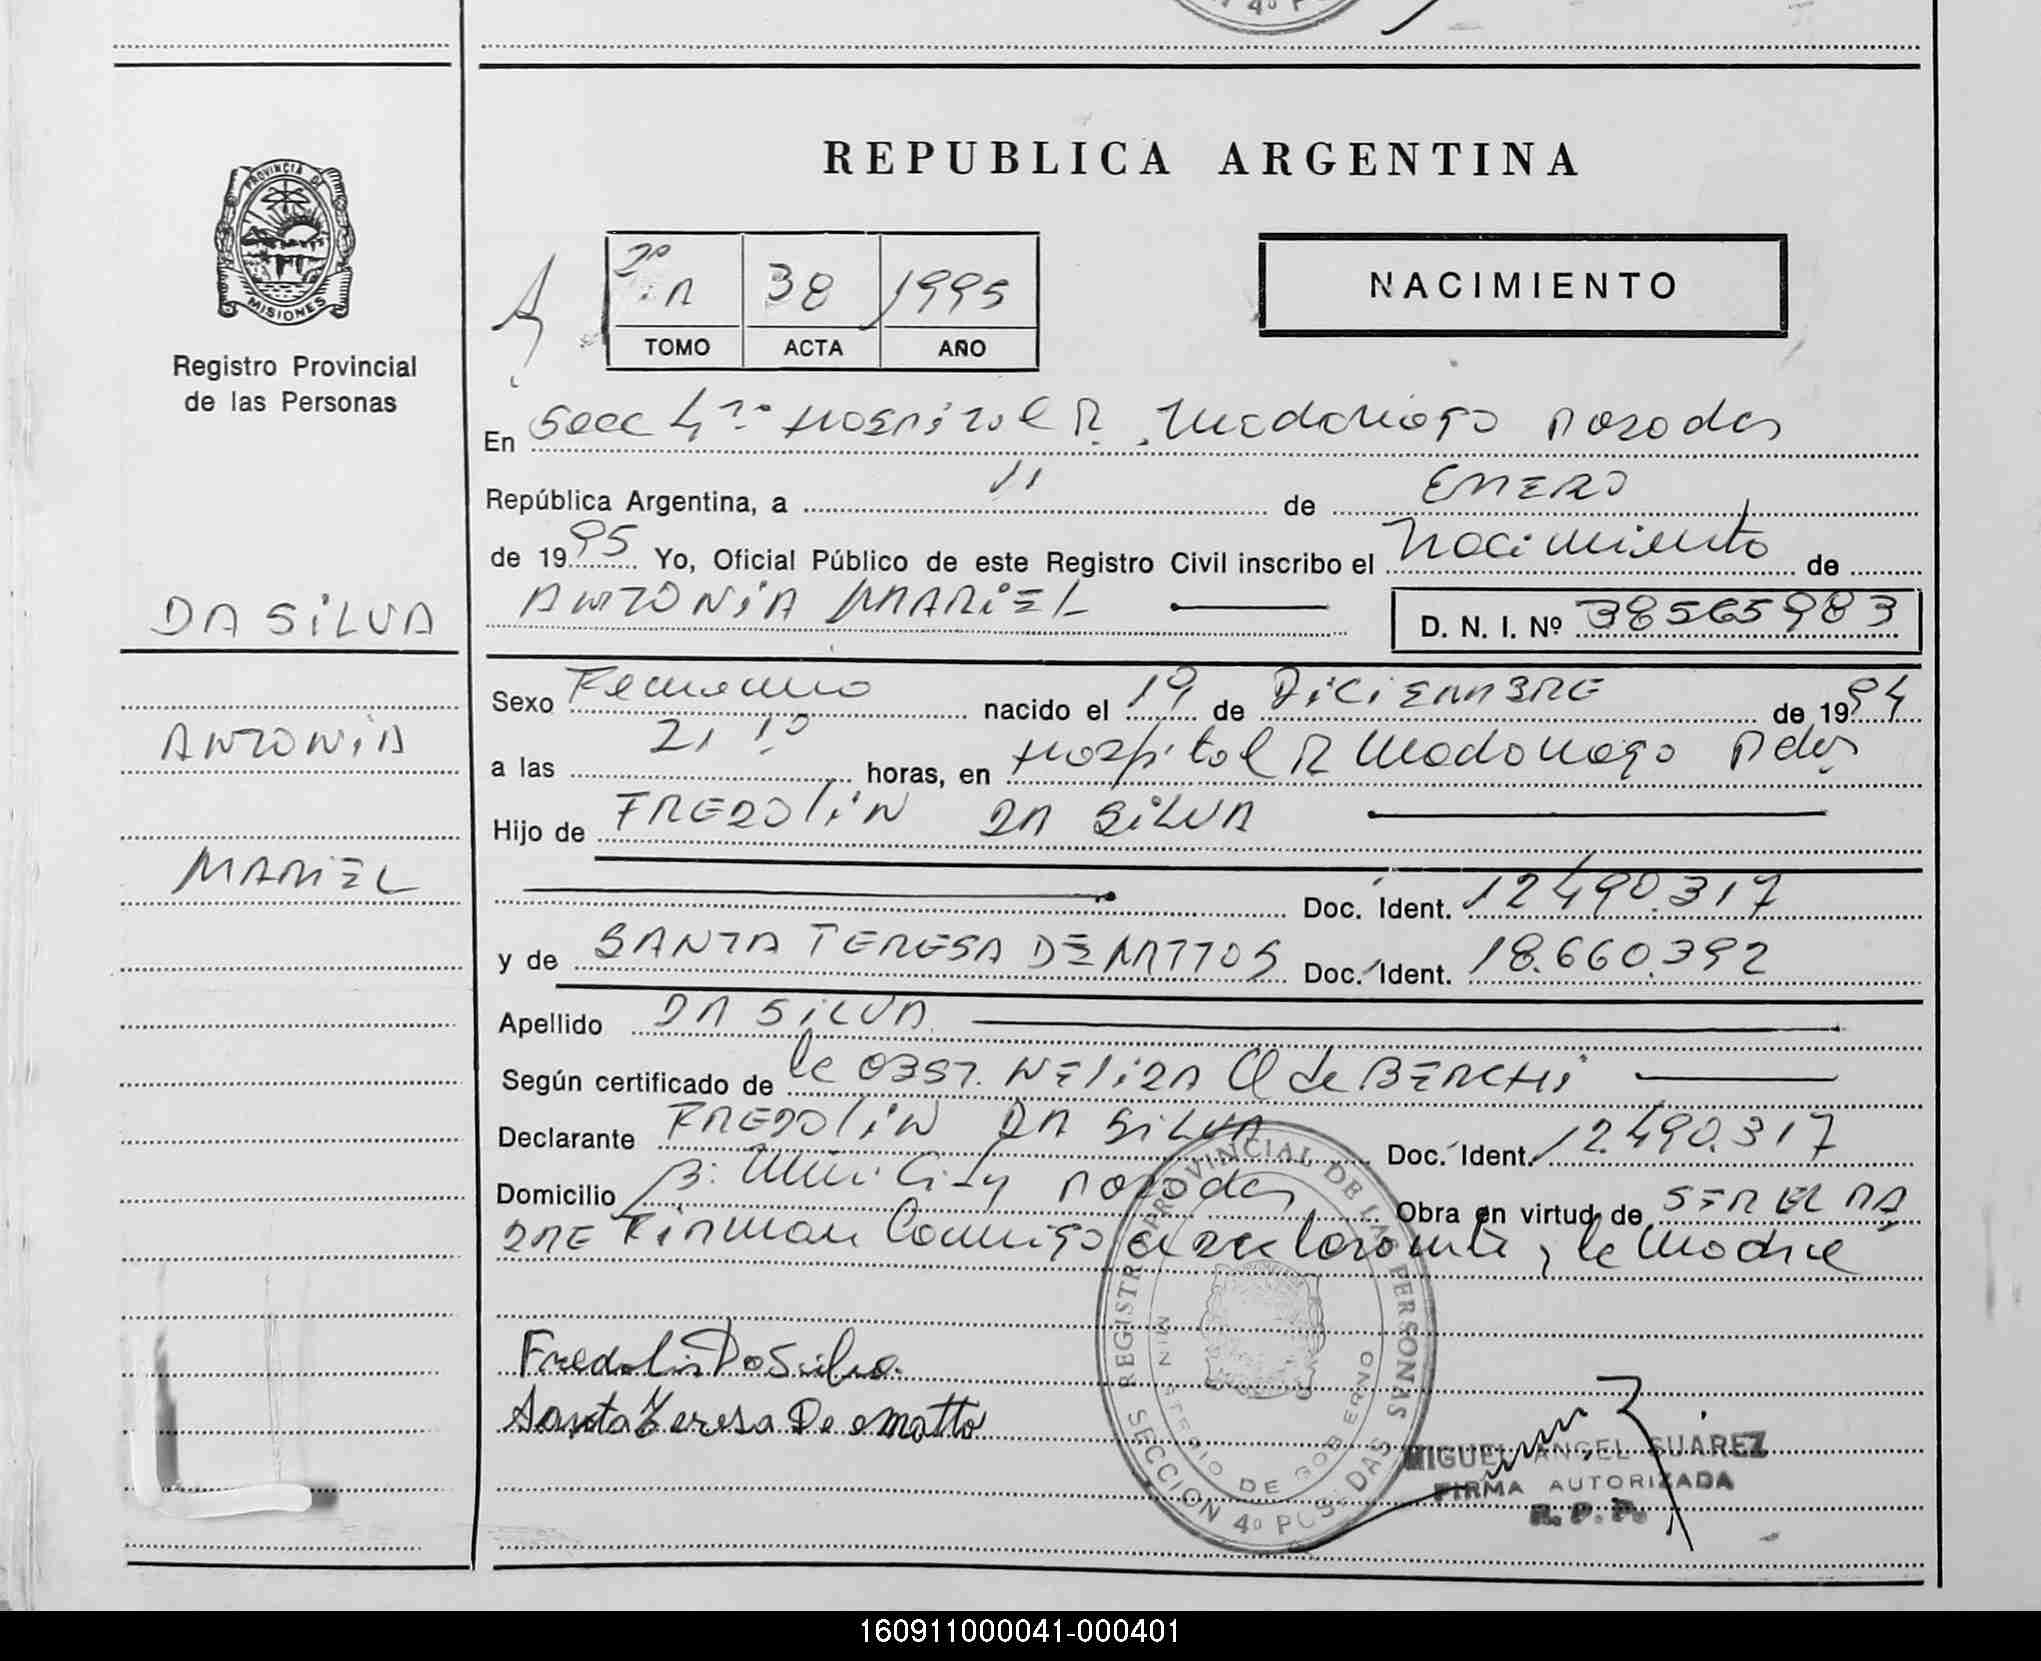 PROVINCIA DE
MISIONES
Registro Provincial
de las Personas
DA SILVA
ANTONIA
MARIEL
REPUBLICA ARGENTINA
2º 38 1995
TOMO ACTA AÑO
NACIMIENTO
En Secc 4ta Hospital R. Madariaga Posadas
República Argentina, a 11 de ENERO
de 1995 Yo, Oficial Público de este Registro Civil inscribo el Nacimiento de
ANTONIA MARIEL D. N. I. Nº 38565983
Sexo Femenino nacido el 19 de DICIEMBRE de 1994
a las 21 10 horas, en Hospital R Madariaga Pdas
Hijo de FREDOLIN DA SILVA
Doc. Ident. 12490.317
y de SANTA TERESA DE MATTOS Doc. Ident. 18.660.392
Apellido DA SILVA
Según certificado de la OBST. NELIDA de BERCHI
Declarante FREDOLIN DA SILVA Doc. Ident. 12.490.317
Domicilio B: Mini City Posadas Obra en virtud de SER EL PA
DRE Firman Conmigo el declarante y la Madre
Fredolin Da Silva
Santa Teresa De Matto
REGISTRO PROVINCIAL DE LAS PERSONAS
MINISTERIO DE GOBIERNO
SECCION 4º POSADAS
MIGUEL ANGEL SUAREZ
FIRMA AUTORIZADA
R. P. P.
160911000041-000401